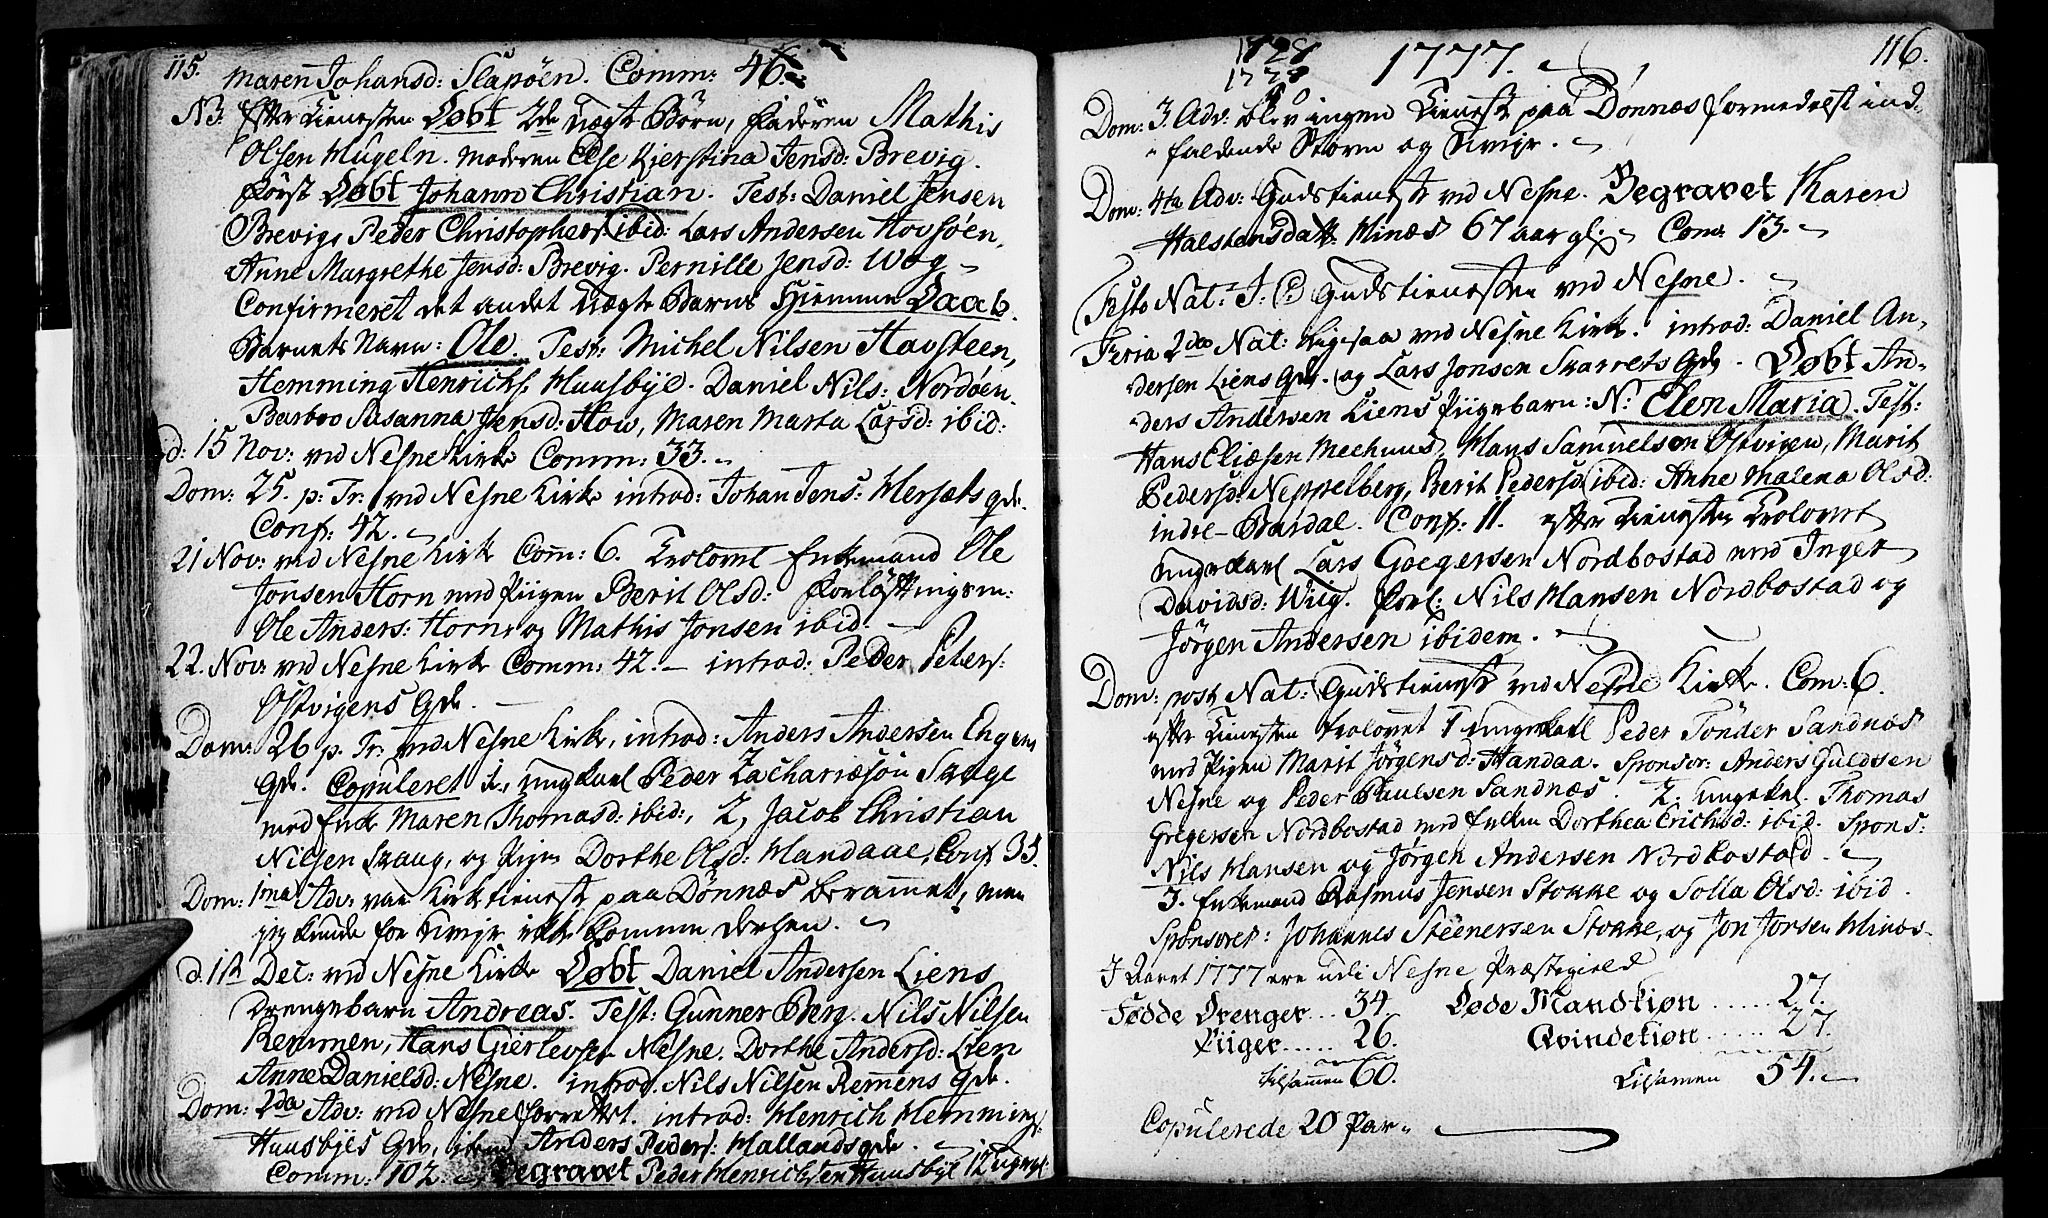 115.
Maren Johansd: Slapøen. Comm: 46.
NB: Efter Tienesten Døbt 2de uægte Børn, Faderen Mathis
Olsen Hugeln. Moderen Else Kierstina Jensd: Brevig.
Først Døbt Johann Christian. Test: Daniel Jensen
Brevig, Peder Christophers: ibid: Lars Andersen Hovsøen,
Anne Margrethe Jensd: Brevig. Pernille Jensd: Wog
Confirmeret det andet uægte Barns Hiemme Daab.
Barnets Navn: Ole. Test: Michel Nilsen Havsteen,
Hemming Henrichs: Huusbye. Daniel Nils: Nordøen.
Barbro Susanna Jensd: How, Maren Marta Larsd: ibid:
d: 15 Nov: ved Nesne Kirke Comm: 33.
Dom: 25. p: Tr: ved Nesne Kirke introd: Johan Jens: Hersæts qde.
Conf: 42.
21 Nov: ved Nesne Kirke Com: 6. Trolovet Enkemand Ole
Jonsen Horn med Piigen Berit Olsd: Forløftningsm:
Ole Anders: Horn, og Mathis Jonsen ibid.
22. Nov: ved Nesne Kirke Comm: 42. introd: Peder Peters:
Østvigens Qde.
Dom: 26 p. Tr: ved Nesne Kirke, introd: Anders Andersen Engens
Qde. Copuleret 1, ungkarl Peder Zachariæsøn Skage
med Enke Maren Thomasd: ibid:, 2, Jacob Christian
Nilsen Skaug, og Pigen Dorthe Olsd: Handaae, Conf 33.
Dom: 1ma Adv: var Kirketieneste paa Dønnæs berammet, men
jeg kunde for Uvejr ikke komme dersen.
d. 1ste Dec: ved Nesne Kirke Døbt Daniel Andersen Liens
Drengebarn Andreas. Test: Gunner Berg. Nils Nilsen
Remmen, Hans Gierlevsen Nesne. Dorthe Andersd: Lien
Anne Danielsd: Nesne. introd. Nils Nilsen Remmens Qde.
Dom: 2da Adv: ved Nesne forrettet. introd: Henrich Hemmings:
Huusbyes Qde, item Anders Peders: Hallands qde.
Comm: 102. Begravet Peder Henrichsen Huusbye 12 ug. gl:
1777.
116.
Dom: 3. Adv: blev ingen Tieneste paa Dønnæs formedelst ind-
faldende Storm og Uvejr.
Dom: 4ta Adv: Gudstieneste ved Nesne. Begravet Maren
Halstensdatt: Hinæs 67 aar gl: Com: 13.
Festo Nat: J: C: Gudstienesten ved Nesne.
Feria 2da Nat: ligesaa ved Nesne Kirke. introd: Daniel An-
dersen Liens Qde. og Lars Jonsen Skarrets Qde. Døbt An-
ders Andersen Liens Piigebarn: N: Elen Maria. Test:
Hans Eliæsen Mechuus, Hans Samuelsen Østvigen, Marit
Pedersd: Neppelberg, Berit Pedersd ibid: Anne Malena Olsd:
indre-Bardal. Conf: 11. efter Tienesten Trolovet
ungekarl Lars Gregersen Nordbostad med Inger
Davidsd: Wiig. Forl: Nils Hansen Nordbostad og
Jörgen Andersen ibidem.
Dom: post Nat: Gudstieneste ved Nesne Kirke. Com: 6.
efter Tienesten trolovet 1 ungekarl Peder Tönder Sandnæs
med Pigen Marit Jörgensd: Handaa. Sponsor: Anders Guldsen
Nesne og Peder Paulsen Sandnæs. 2. ungekal. Thomas
Gregersen Nordbostad med Enken Dorthea Erichsd: ibid. Spons:
Nils Hansen og Jørgen Andersen Nordbostad.
3. Enkemand Rasmus Jensen Stokke og Solla Olsd: ibid.
Sponsores: Johannes Steenersen Stokke, og Jon Jonsen Hinæs.
I Aaret 1777 ere udi Nesne Præstegield
Fødde Drenger... 34. Døde Mandkiøn ...... 27.
Piiger..... 26. Qvindekiøn ...... 27.
Tilsammen 60. Tilsamen 54.
Copulerede 20 Par.